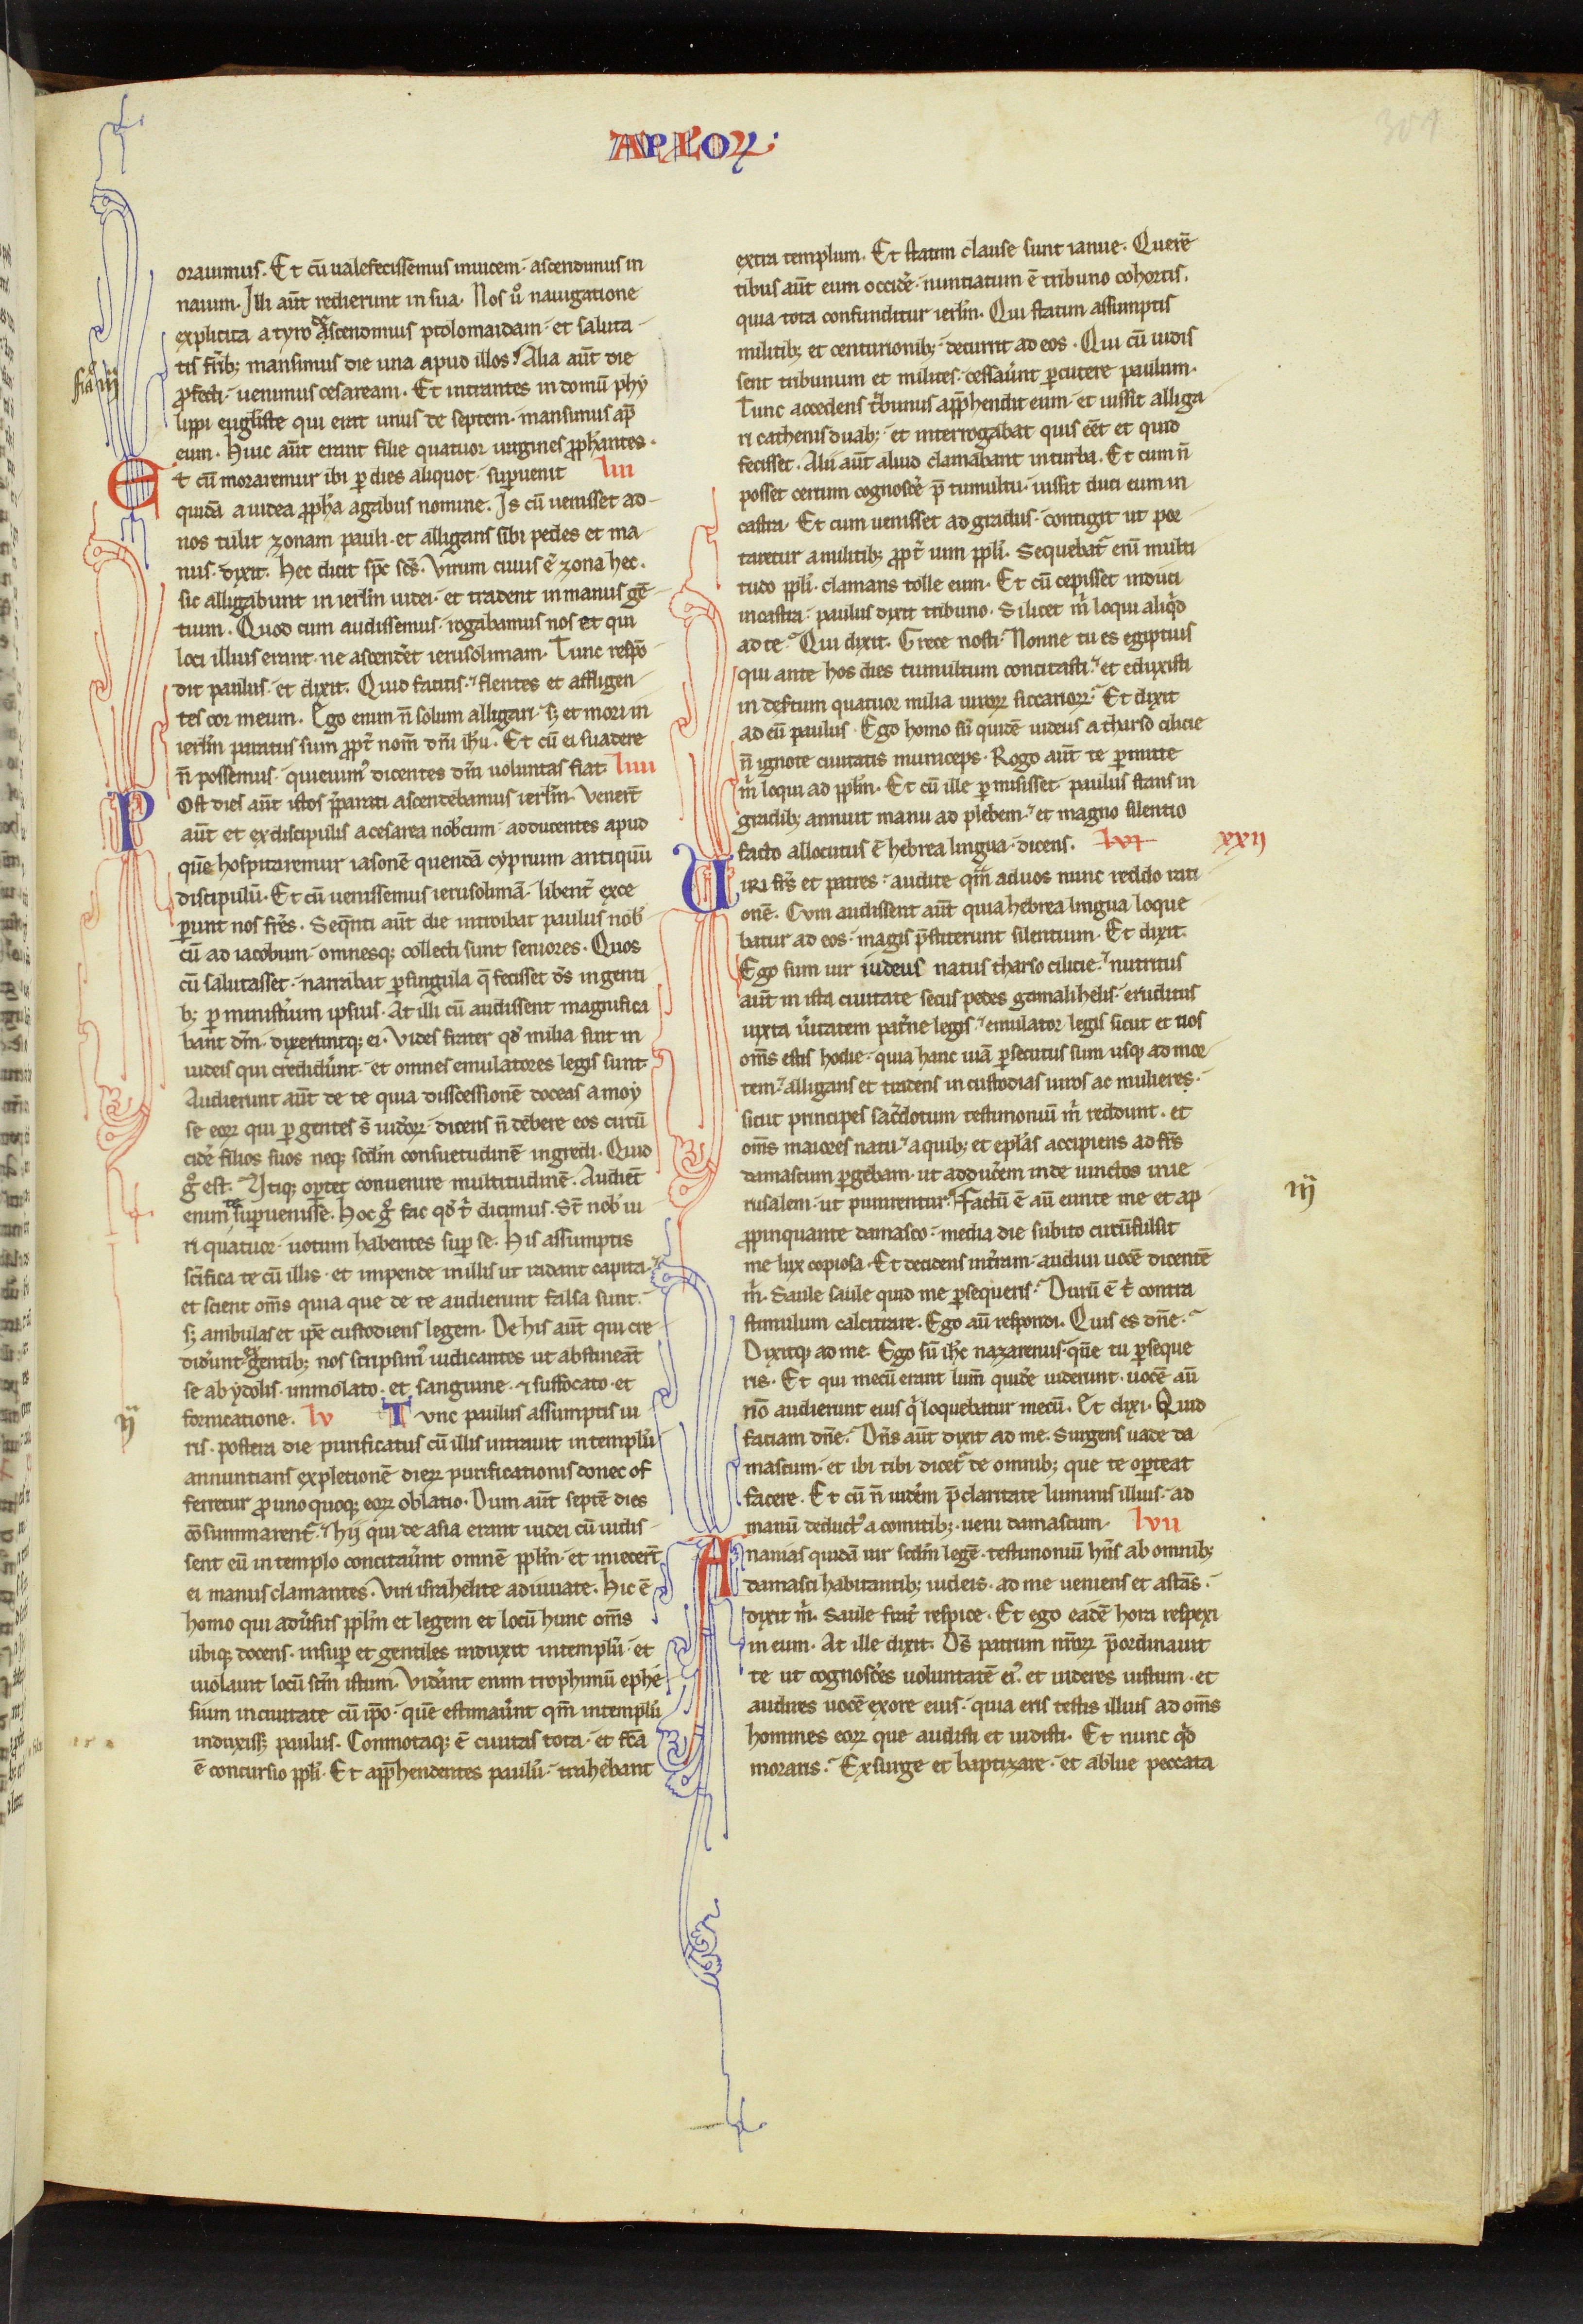 APLOꝝ
301
orauimus. Et cū ualefecissemus inuicem. ascendimus in
nauim. Illi aūt redierunt in sua. Nos ū̊ nauigatione
explicita a tyro descendimus ptolomaidam. et saluta
tis fr̄ib; mansimus die una apud illos. Alia aūt die
ꝓfecti. uenimus cesaream. Et intrantes in domū phy
lippi eug̅liste qui erat unus de septem. mansimus ap̄
eum. Huic aūt erant filie quatuor uirgines ꝓph̄antes.
Et cū moraremur ibi ꝑ dies aliquot. suꝑuenit liii
quidā a iudea ꝓph̄a agabus nomine. Is cū uenisset ad
nos tulit zonam pauli. et alligans sibi pedes et ma
nus. dixit. Hec dicit sp̄c sc̄s. Virum cuius ē zona hec.
sic alligabunt in ierl̄m iudei. et tradent in manus gē
tium. Quod cum audissemus. rogabamus nos et qui
loci illius erant. ne ascend̄et ierusolimam. Tunc respō
dit paulus. et dixit. Quid facitis. flentes et affligen
tes cor meum. Ego enim n̄ solum alligari. s; et mori in
ierl̄m paratus sum ꝓpt̄ nom̄ dn̄i ih̄u. Et cū ei suadere
n̄ possemus. quieuim᷒ dicentes dn̄i uoluntas fiat. liiii
Post dies aūt istos p̄parati ascendebamus ierl̄m. Venert̄
aūt et ex discipulis a cesarea nob᷒cum. adducentes apud
quē hospitaremur iasonē quendā cyprium antiquū
discipulū. Et cū uenissemus ierusolimā. libent̄ exce
ꝑunt nos fr̄es. Seq̄nti aūt die introibat paulus nob᷒
cū ad iacobum. omnesq; collecti sunt seniores. Quos
cū salutasset. narrabat ꝑ singula q̄ fecisset d̄s in genti
b; ꝑ minist̄ium ipsius. At illi cū audissent magnifica
bant dm̄. dixeruntq; ei. Vides frater qd᷒ milia sint in
iudeis qui credid̄unt. et omnes emulatores legis sunt.
Audierunt aūt de te quia disscessionē doceas a moy
se eoꝝ qui ꝑ gentes s̄ iud̄oꝝ. dicens n̄ debere eos circū
cid̄e filios suos neq; scd̄m consuetudinē ingredi. Quid
g̊ est. Vtiq; oꝑtet conuenire multitudinē. Audient̄
enim te suꝑuenisse. Hoc g̊ fac qd᷒ t̄ dicimus. St̄ nob᷒ ui
ri quatuor. uotum habentes suꝑ se. His assumptis
sc̄ifica te cū illis. et impende in illis ut radant capita.
et scient om̄s quia que de te audierunt falsa sunt.
s; ambulas et ip̄e custodiens legem. De his aūt qui cre
did̄unt ex gentib; nos scripsim᷒ iudicantes ut abstineāt
se ab ydolis. immolato. et sanguine. ⁊ suffocato. et
fornicatione. lv Tunc paulus assumptis ui
ris. postera die purificatus cū illis intrauit in templū
annuntians expletionē dierꝝ purificationis donec of
ferretur ꝓ unoquoq; eoꝝ oblatio. Dum aūt septē dies
cōsummarent᷑. hij qui de asia erant iudei cū uidis
sent eū in templo concitaūnt omnē ppl̄m. et iniecert̄
ei manus clamantes. Viri israhelite adiuuate. Hic ē
homo qui adūsus ppl̄m et legem et locū hunc om̄s
ubiq; docens. insuꝑ et gentiles induxit in templū. et
uiolauit locū sc̄m istum. Vid̄ant enim trophimū ephe
sium in ciuitate cū ip̄o. quē estimaūnt qm̄ in templū
induxiss; paulus. Commotaq; ē ciuitas tota. et fc̄a
ē concursio ppl̄i. Et app̄hendentes paulū. trahebant
ij
extra templum. Et statim clause sunt ianue. Querē
tibus aūt eum occid̄e. nuntiatum ē tribuno cohortis.
quia tota confunditur ierl̄m. Qui statim assumptis
militib; et centurionib;. decurrit ad eos. Qui cū uidis
sent tribunum et milites. cessaūnt ꝑcutere paulum.
Tunc accedens t̄bunus app̄hendit eum. et iussit alliga
ri cathenis duab;. et interrogabat quis eēt et quid
fecisset. Alii aūt aliud clamabant in turba. Et cum n̄
posset certum cognosc̄e p̄ tumultu. iussit duci eum in
castra. Et cum uenisset ad gradus. contigit ut por
taretur a militib; ꝓpt̄ uim ppl̄i. Sequebat᷑ enī multi
tudo ppl̄i. clamans tolle eum. Et cū cepisset induci
in castra. paulus dixit tribuno. Si licet m̄ loqui aliq̄d
ad te. Qui dixit. Grece nosti. Nonne tu es egiptius
qui ante hos dies tumultum concitasti. et eduxisti
in des̄tum quatuor milia uiroꝝ siccarioꝝ. Et dixit
ad eū paulus. Ego homo sū quidē iudeus a tharso cilicie
n̄ ignote ciuitatis municeps. Rogo aūt te ꝑmitte
m̄ loqui ad ppl̄m. Et cū ille ꝑmisisset. paulus stans in
gradib; annuit manu ad plebem. et magno silentio
facto allocutus ē hebrea lingua. dicens. lvi xxij
VIRI fr̄s et patres. audite qm̄ ad uos nunc reddo rati
onē. Cvm audissent aūt quia hebrea lingua loque
batur ad eos. magis p̄stiterunt silentium. Et dixit.
Ego sum uir iudeus natus tharso cilicie. nutritus
aūt in ista ciuitate secus pedes gamalihelis. eruditus
iuxta ūitatem pat̄ne legis. emulator legis sicut et uos
om̄s estis hodie. quia hanc uiā ꝑsecutus sum usq; ad mor
tem. alligans et tradens in custodias uiros ac mulieres.
sicut principes sac̄dotum testimoniū m̄ reddunt. et
om̄s maiores natu. a quib; et epl̄as accipiens ad fr̄s
damascum ꝑgebam. ut adduc̄em inde uinctos in ie
rusalem. ut punirentur. Factū ē aū eunte me et ap
ꝓpinquante damasco. media die subito circūfulsit
me lux copiosa. Et decidens in t̄ram. audiui uocē dicentē
m̄. Saule saule quid me ꝑsequeris. Durū ē t̄ contra
stimulum calcitrare. Ego aū respondi. Quis es dn̄e.
Dixitq; ad me. Ego sū ih̄c nazarenus. quē tu ꝑseque
ris. Et qui mecū erant lum̄ quid̄e uiderunt. uocē aū
nō audierunt eius q̄ loquebatur mecū. Et dixi. Quid
faciam dn̄e. Dn̄s aūt dixit ad me. Surgens uade da
mascum. et ibi tibi dicet᷑ de omnib; que te oꝑteat
facere. Et cū n̄ uid̄em p̄ claritate luminis illius. ad
manū deduct᷒ a comitib;. ueni damascum. lvii
Ananias quidā uir scd̄m legē. testimoniū hn̄s ab omnib;
damasci habitantib; iudeis. ad me ueniens et astās.
dixit m̄. Saule frat̄ respice. Et ego eadē hora respexi
in eum. At ille dixit. D̄s patrum nr̄oꝝ p̄ordinauit
te ut cognosc̄es uoluntatē ei᷒. et uideres iustum. et
audires uocē ex ore eius. quia eris testis illius ad om̄s
homines eoꝝ que audisti et uidisti. Et nunc qd̄
moraris. Exsurge et baptizare. et ablue peccata
iij